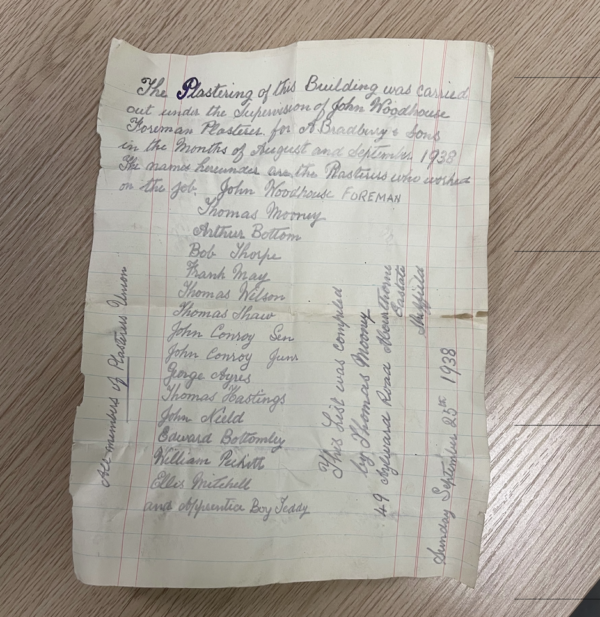 The Plastering of this Building was carried
out under the Supervision of John Woodhouse
Foreman Plasterer for A Bradbury & Sons
in the Months of August and September 1938
The names hereunder are the Plasterers who worked
on the job. John Woodhouse FOREMAN
Thomas Mooney
Arthur Bottom
Bob Thorpe
Frank May
Thomas Wilson
Thomas Shaw
John Conroy Sen
John Conroy Junr
George Ayres
Thomas Hastings
John Nield
Edward Bottomley
William Pickett
Ellis Mitchell
and Apprentice Boy Teddy
All members of Plasterers Union
This List was compiled
by Thomas Mooney
49 Aylward Road
Estate
Sheffield
Sunday September 25th 1938